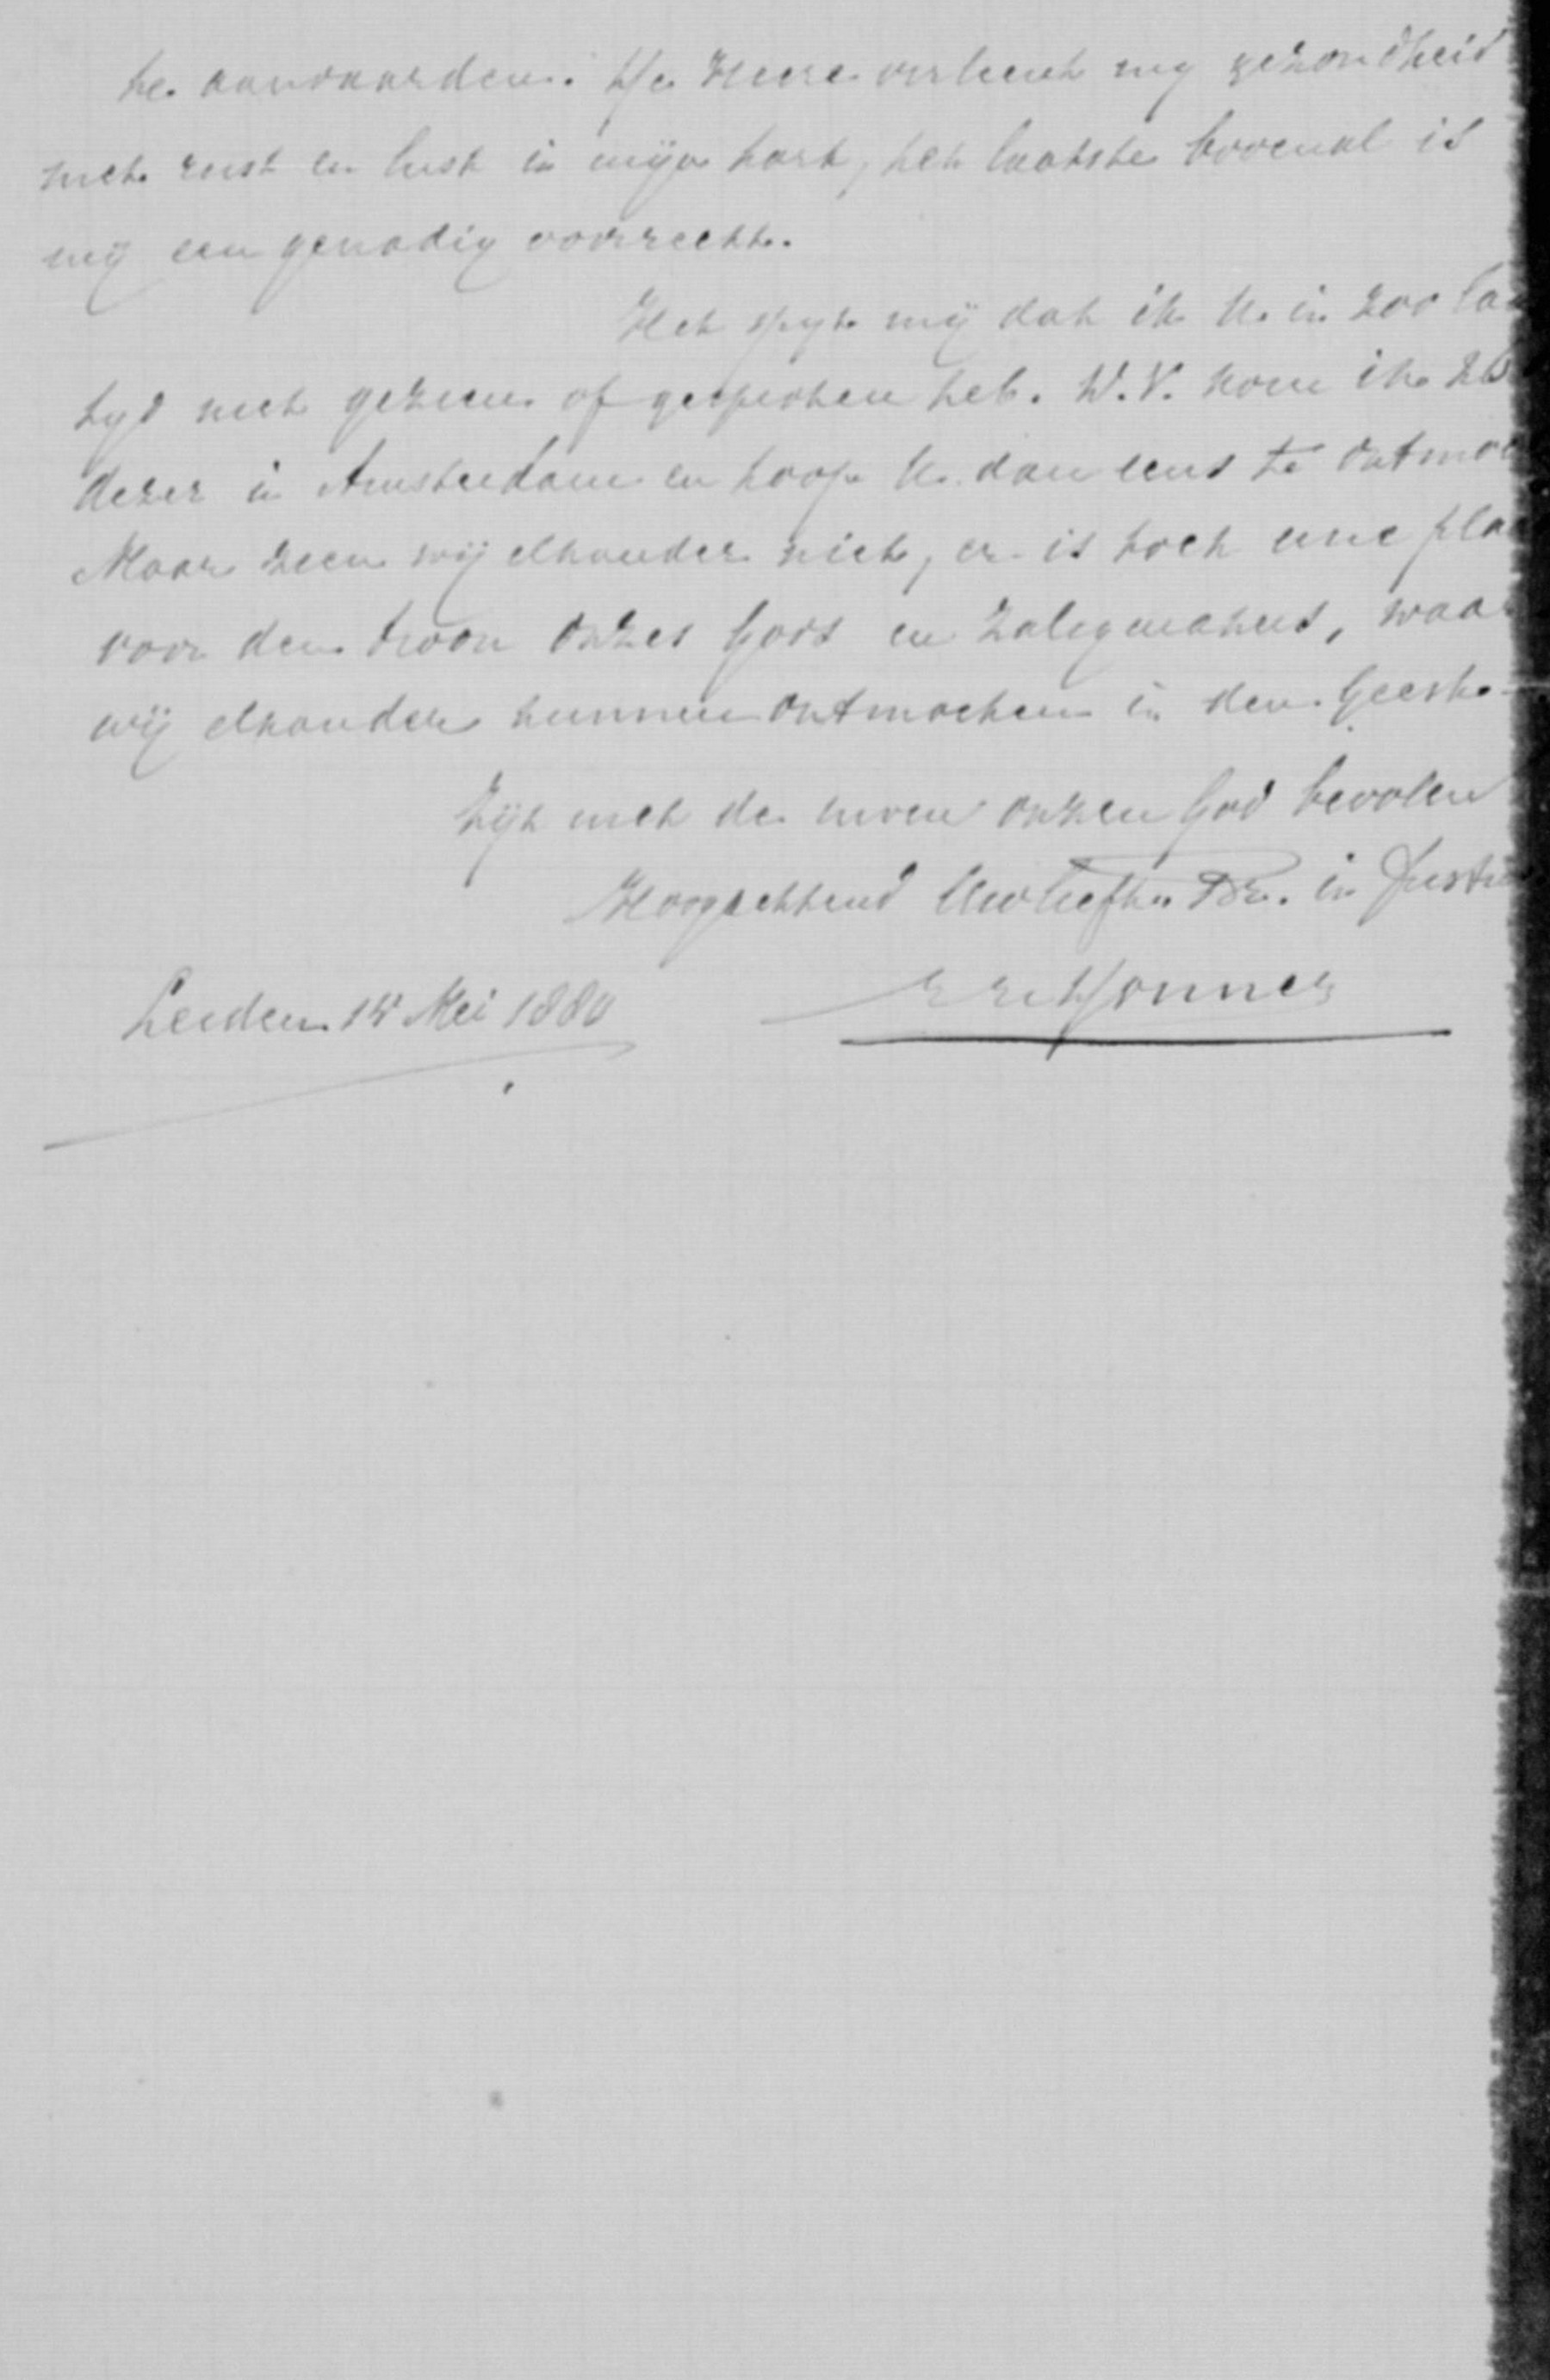 te aanvaarden. De Heere verleent mij gezondheid
met rust en lust in mijn hart, het laatste bovenal is
mij een genadig voorrecht.
Het spijt mij dat ik U in zoo la
tijd niet gezien of gesproken heb. D.V. kom ik 26
dezer in Amsterdam en hoop U dan eens te ontmoe
Maar zien wij elkander niet, er is toch eene pla
voor den troon onzes Gods en Zaligmakers, waa
wij elkander kunnen ontmoeten in den Geest.
Zijt met de uwen onzen God bevolen
Hoogachtend Uw liefh. Br. in Christ
Donner
Leiden 15 Mei 1880